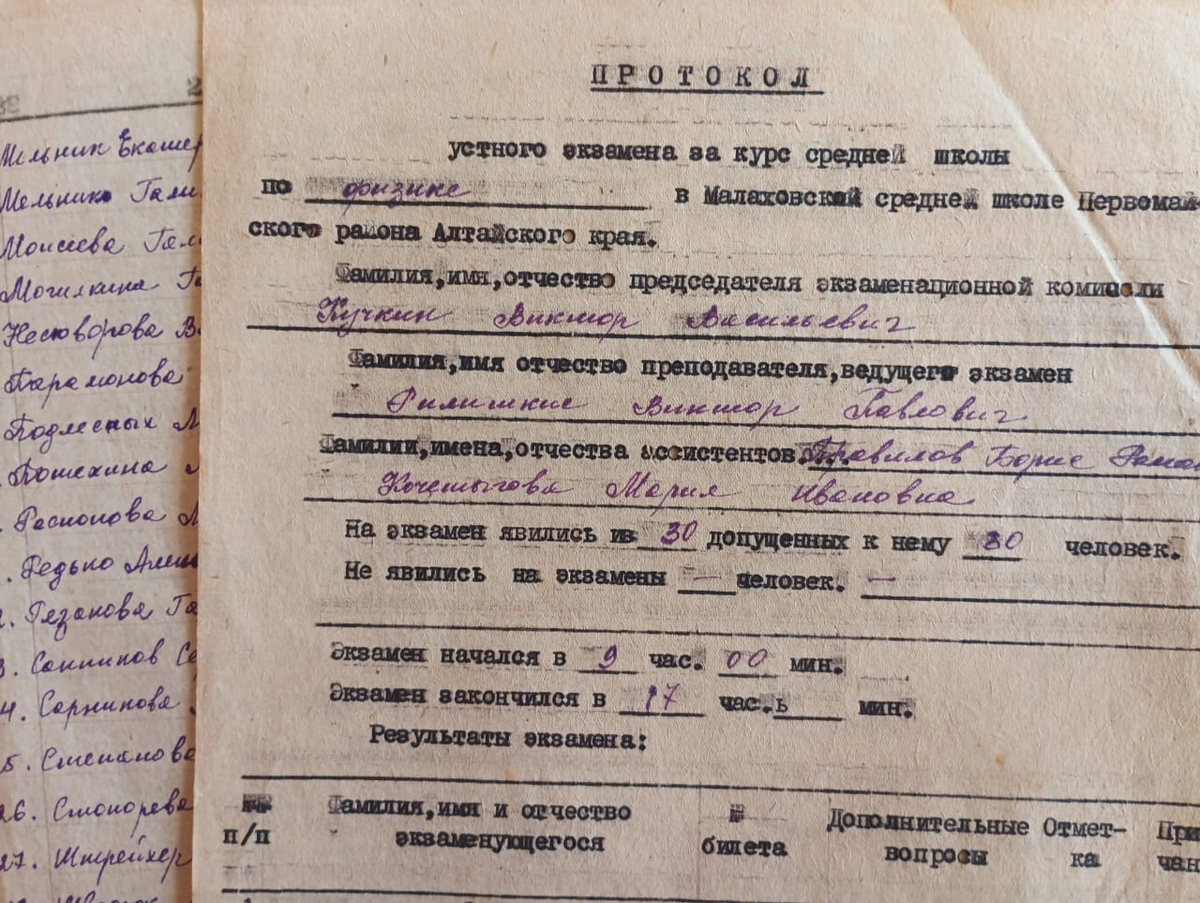 Мельник Екатер
Мельник Гали
Моисеева Гал
Могилкина Га
Несговорова В
Парамонова
Подлесных
Потехина
Распопова
Редько
Рязанова Га
Санников Се
4. Сартикова
5. Степанова
26. Стопорева
27. Штрейхер
ПРОТОКОЛ
устного экзамена за курс средней школы
по физике в Малаховской средней школе Первомай-
ского района Алтайского края.
Фамилия,имя,отчество председателя экзаменационной комиссии
Кучкин Виктор Васильевич
Фамилия,имя отчество преподавателя,ведущего экзамен
Виктор Павлович
Фамилии,имена,отчества ассистентов... Правилов Борис Рома
Мария Ивановна
На экзамен явились из 30 допущенных к нему 30 человек.
Не явились на экзамены — человек. —
Экзамен начался в 9 час. 00 мин.
Экзамен закончился в 17 час.ь мин.
Результаты экзамена:
№№ Фамилия,имя и отчество № Дополнительные Отмет- При
п/п экзаменующегося билета вопросы ка чан